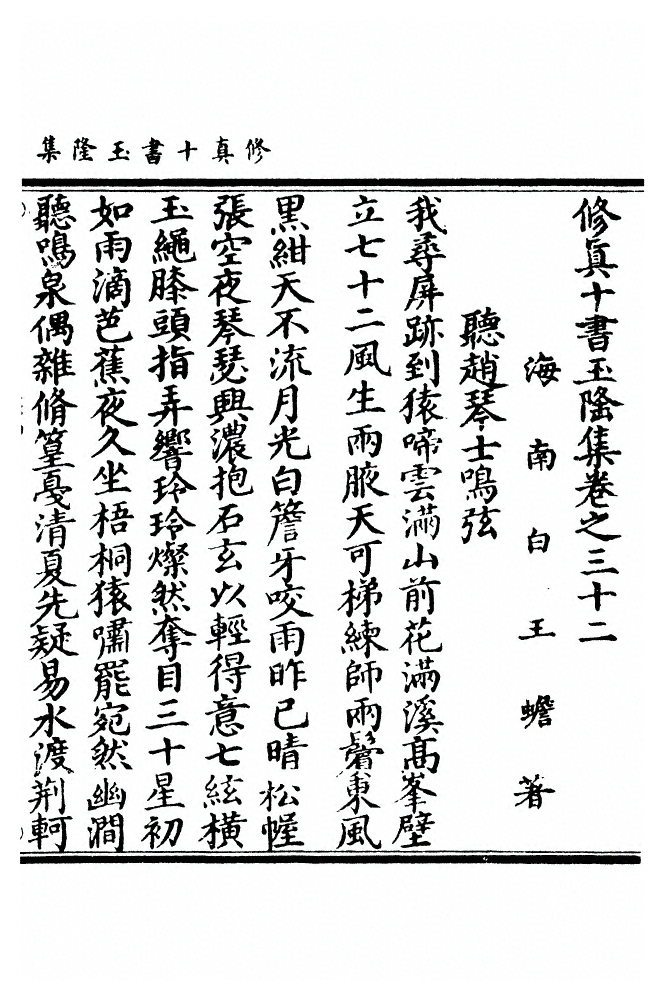 修真十書玉隆集
修真十書玉隆集卷之三十二
海南白玉蟾著
聽趙琴士鳴弦
我尋屏跡到猿啼雲滿山前花滿溪高峯壁
立七十二風生兩腋天可梯練師兩鬢東風
黑紺天不流月光白簷牙咬雨昨已晴松幄
張空夜琴瑟興濃抱石玄以輕得意七絃橫
玉繩膝頭指弄響玲玲燦然奪目三十星初
如雨滴芭蕉夜久坐梧桐猿嘯罷宛然幽澗
聽鳴泉偶雜脩篁戞清夏先疑易水渡荆軻